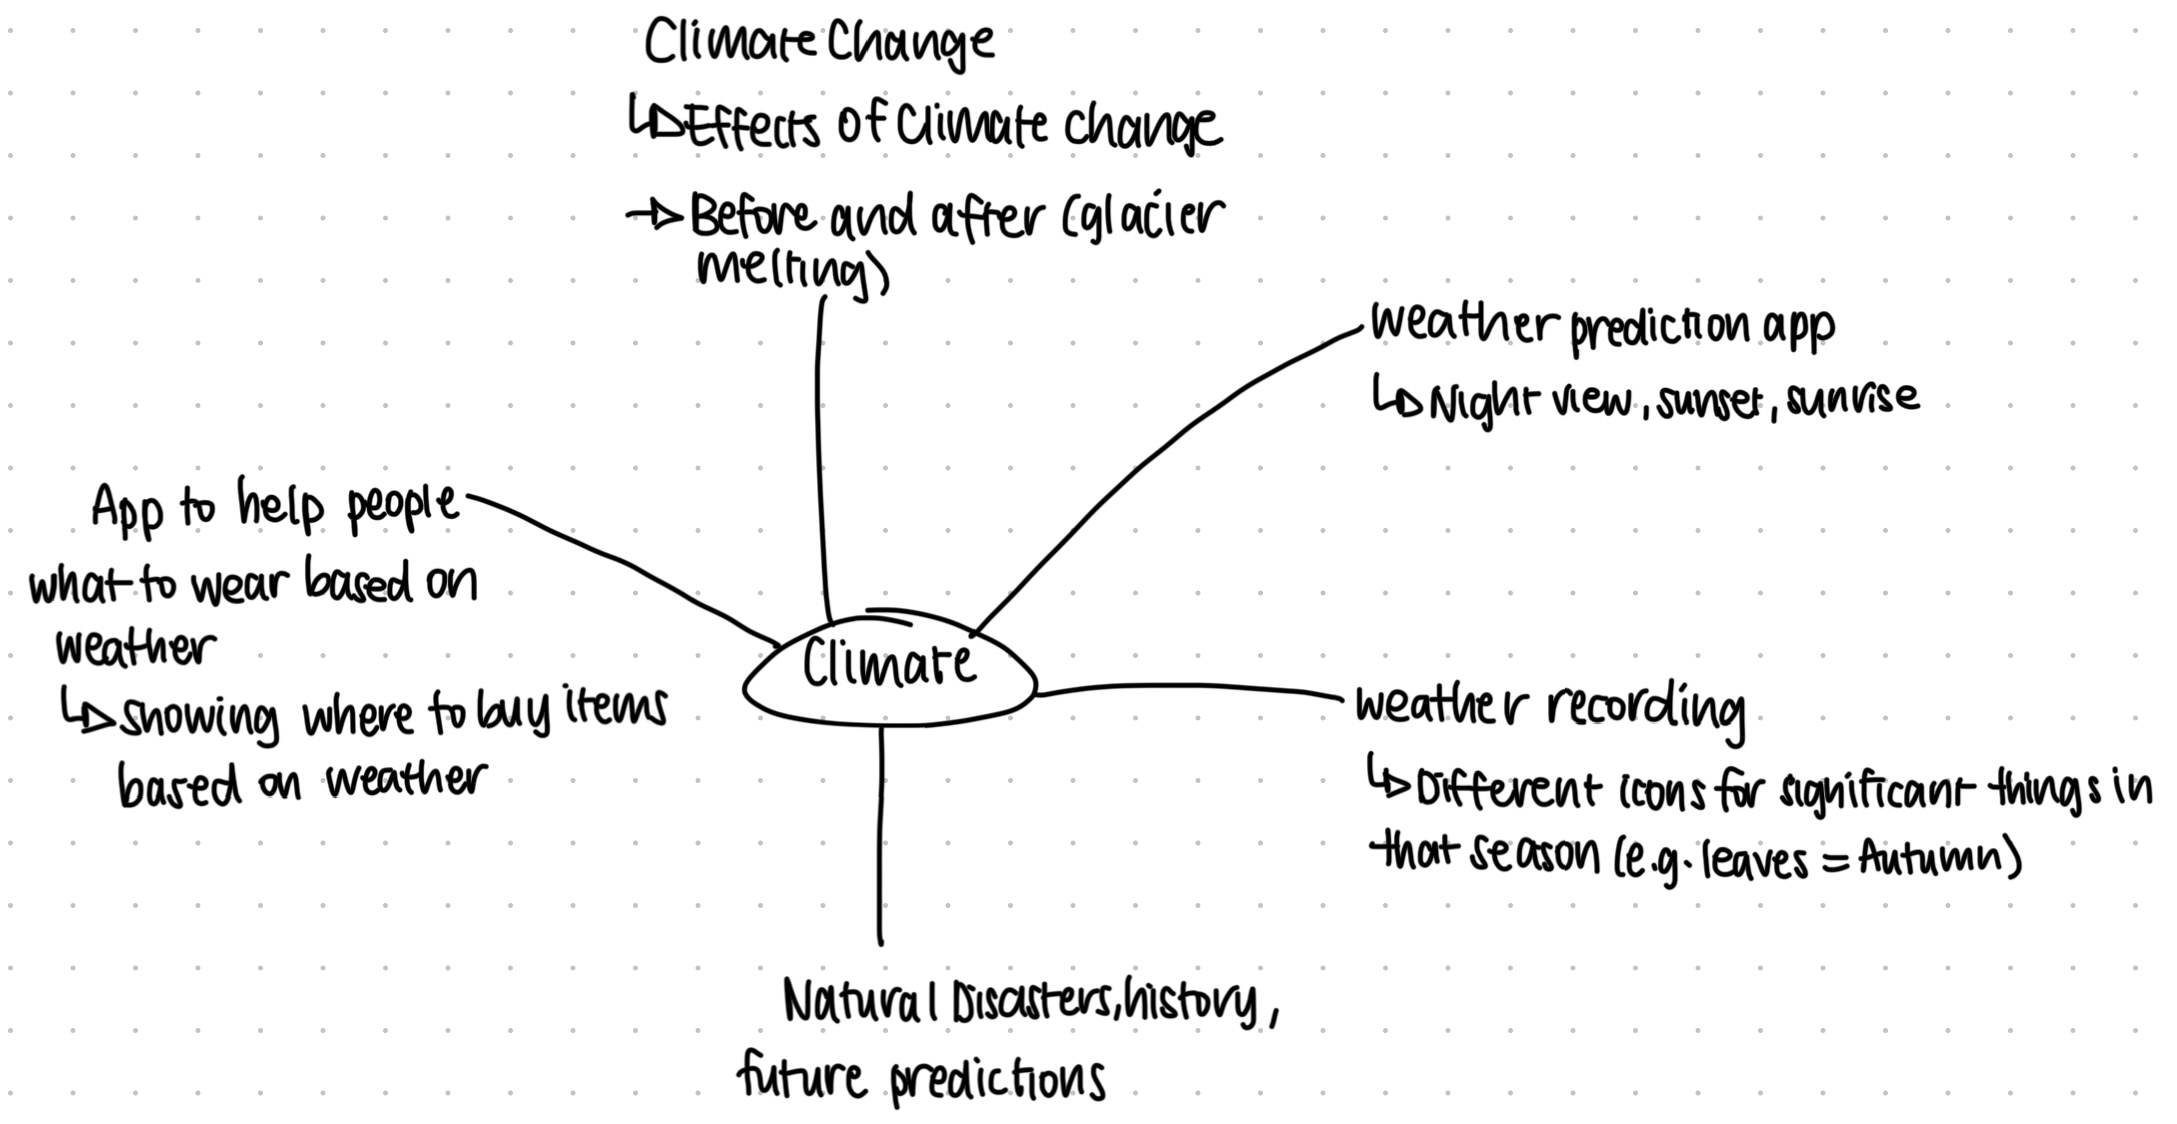 Climate Change
Effects of Climate change
Before and after (glacier
melting)
weather prediction app
Night view, sunset, sunrise
App to help people
what to wear based on
weather
showing where to buy items
based on weather
Climate
weather recording
Different icons for significant things in
that season (e.g. leaves = Autumn)
Natural Disasters, history,
future predictions